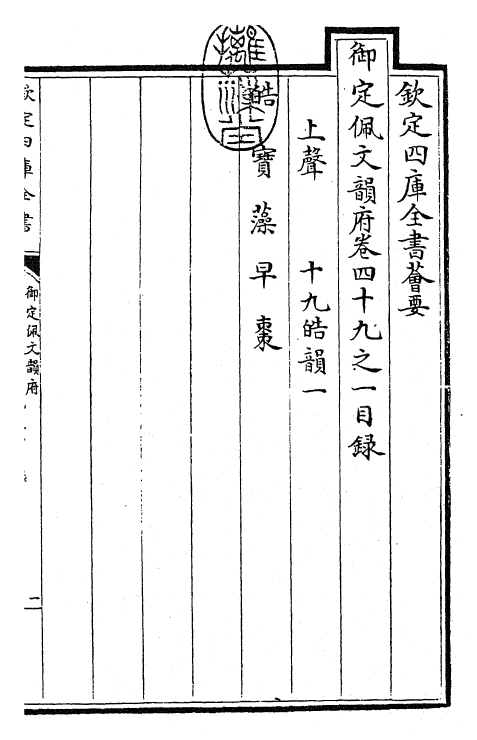 欽定四庫全書薈要
御定佩文韻府卷四十九之一目録
上聲　十九皓韻一
皓　寶　藻　早　棗
欽定四庫全書
御定佩文韻府
二